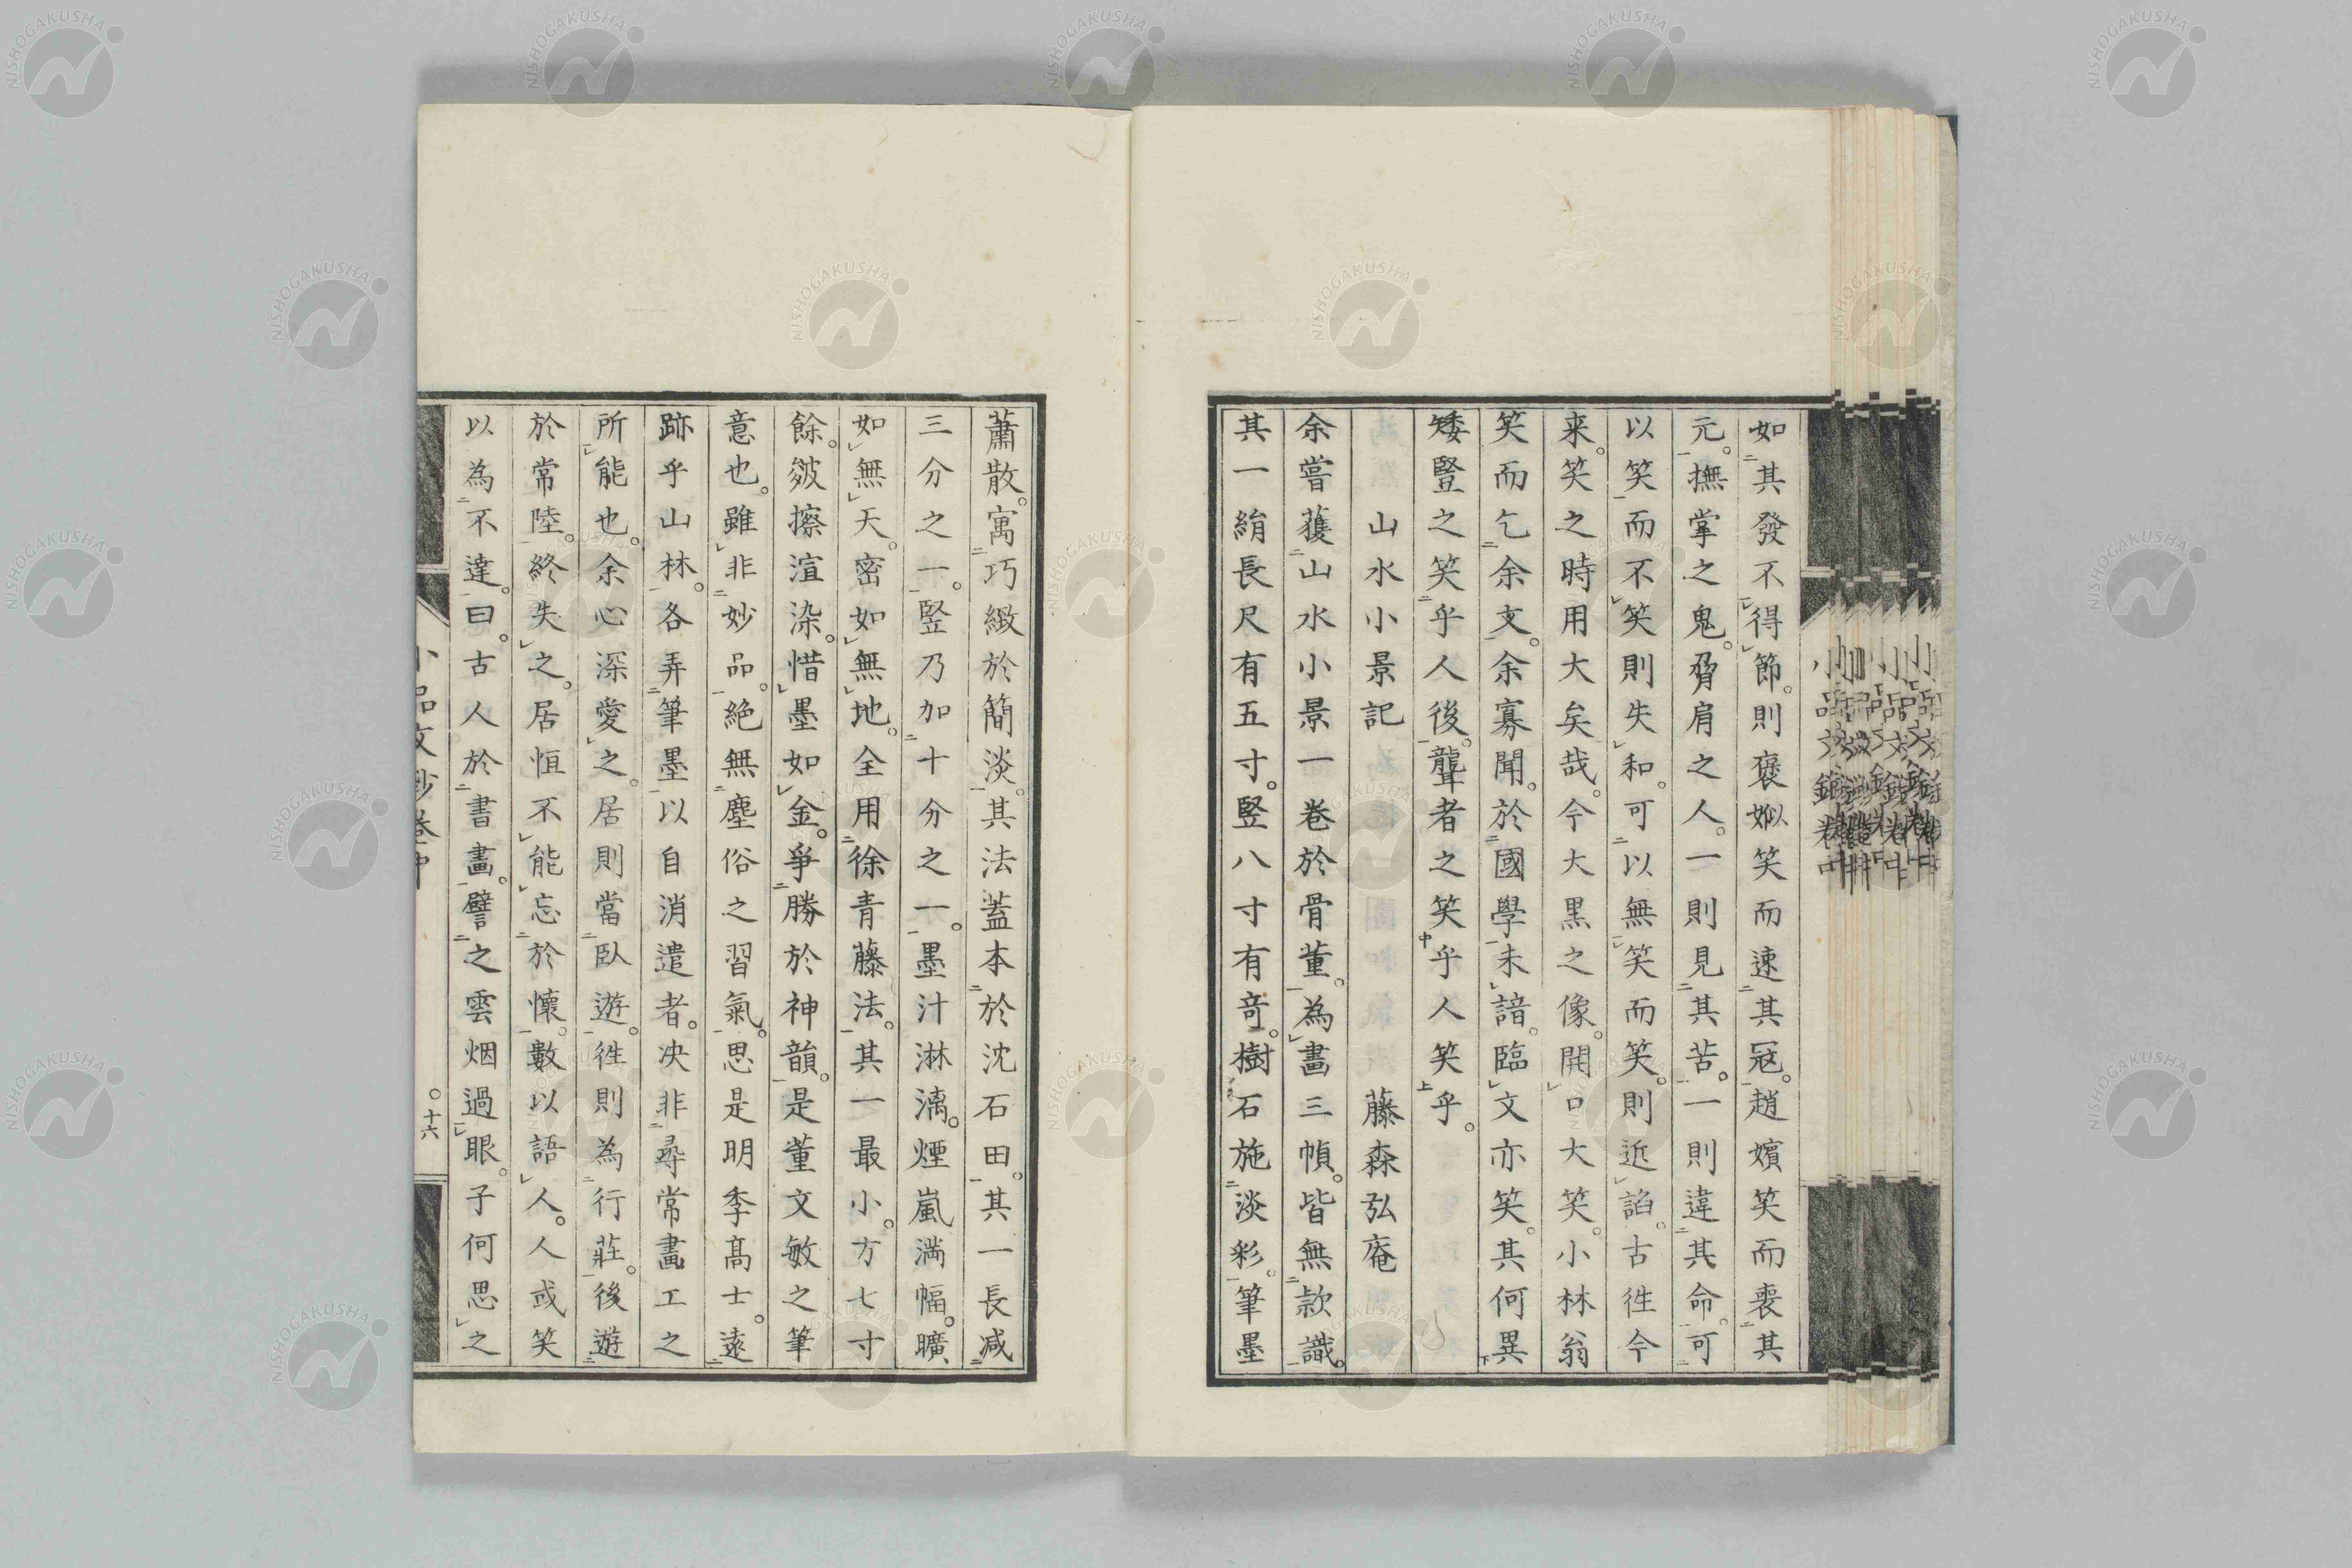 如其發不得節。則褒姒笑而速其寇。趙嬪笑而喪其
元。撫掌之鬼。脅肩之人。一則見其苦。一則違其命。可
以笑而不笑則失和。可以無笑而笑。則近諂。古徃今
来。笑之時用大矣哉。今大黒之像。開口大笑。小林翁
笑而乞余文。余寡聞。於國學未諳。臨文亦笑。其何異
矮豎之笑乎人後。聾者之笑乎人笑乎。
山水小景記 藤森弘庵
余嘗獲山水小景一卷於骨董。為畵三幀。皆無款識。
其一絹長尺有五寸。竪八寸有竒。樹石施淡彩。筆墨
蕭散。寓巧緻於簡淡。其法蓋本於沈石田。其一長减
三分之一。竪乃加十分之一。墨汁淋漓。煙嵐満幅。曠
如無天。密如無地。全用徐青藤法。其一最小。方七寸
餘。皴擦渲染。惜墨如金。爭勝於神韻。是董文敏之筆
意也。雖非妙品。絶無塵俗之習氣。思是明季髙士。遠
跡乎山林。各弄筆墨以自消遣者。决非尋常畵工之
所能也。余心深愛之。居則當臥遊。徃則為行莊。後遊
於常陸。終失之。居恒不能忘於懷。數以語人。人或笑
以為不達。曰。古人於書畵。譬之雲烟過眼。子何思之
小品文鈔卷中
〇十六
NISHOGAKUSHA